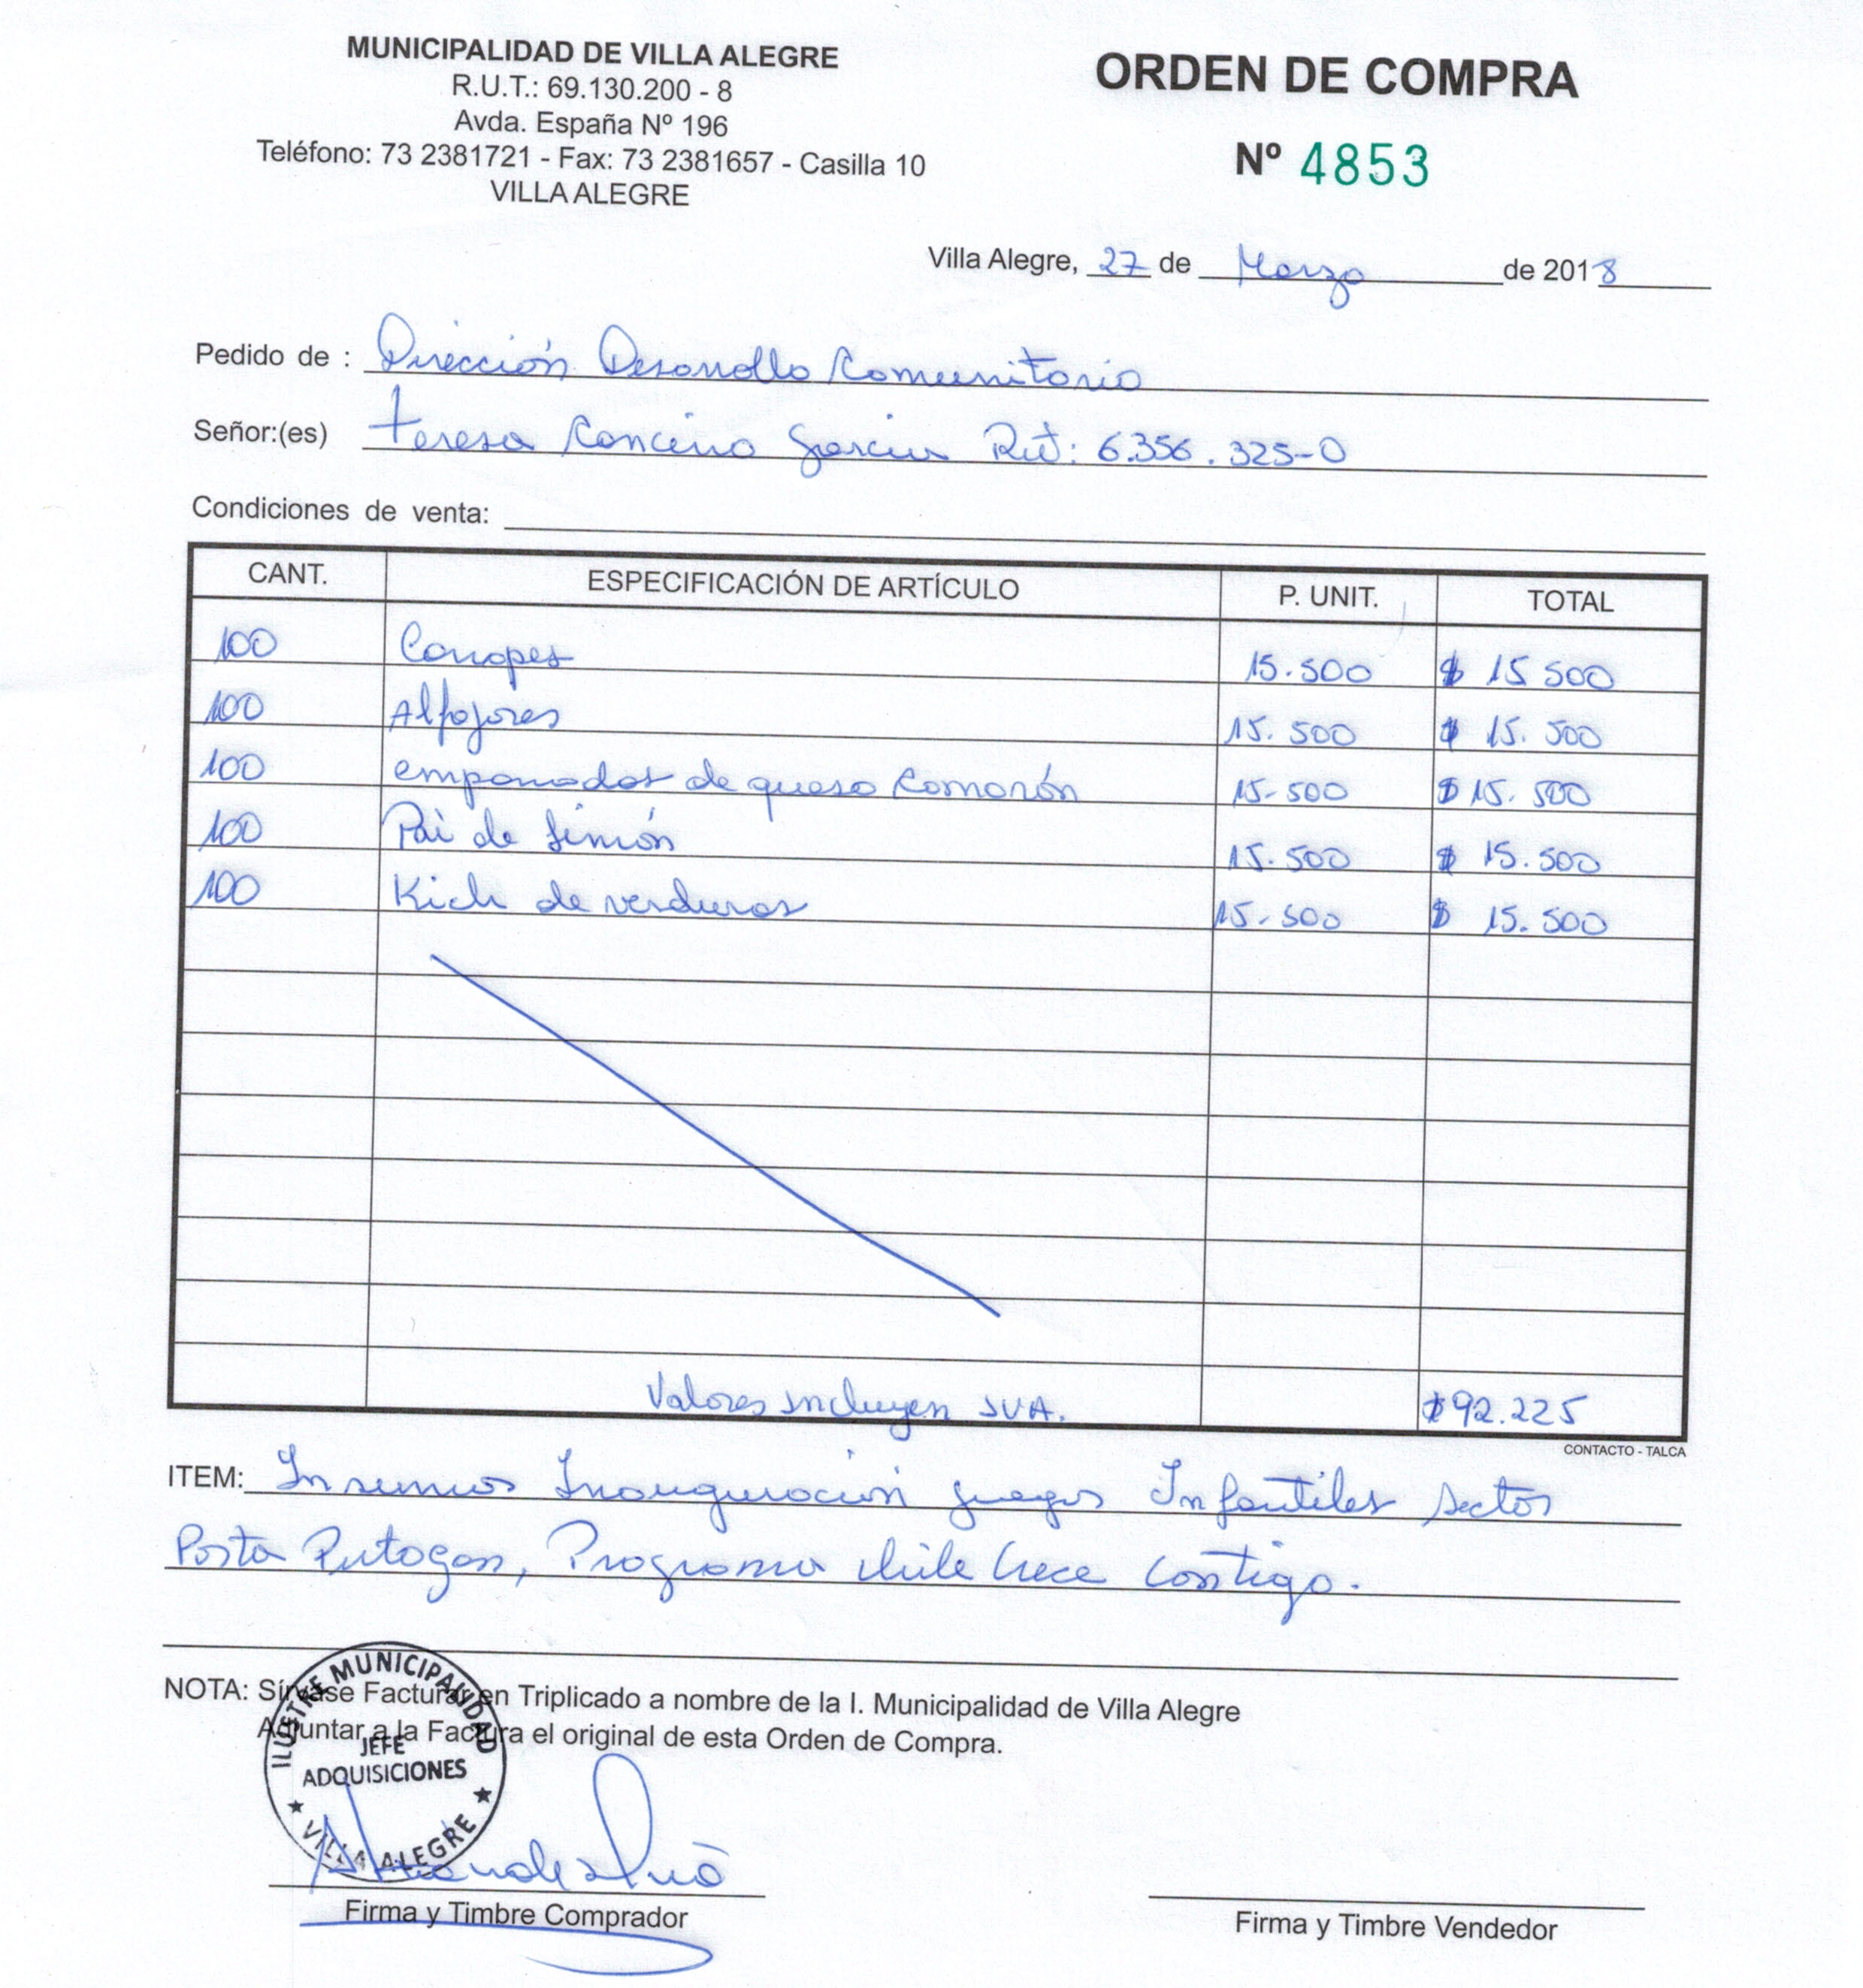 MUNICIPALIDAD DE VILLA ALEGRE
R.U.T.: 69.130.200 - 8
Avda. España Nº 196
Teléfono: 73 2381721 - Fax: 73 2381657 - Casilla 10
VILLA ALEGRE
ORDEN DE COMPRA
Nº 4853
Villa Alegre, 27 de Marzo de 2018
Pedido de : Dirección Desarrollo Comunitario
Señor:(es) Teresa Garcia Rut: 6.356.325-0
Condiciones de venta:
CANT. ESPECIFICACIÓN DE ARTÍCULO P. UNIT. TOTAL
100 Canapes 15.500 $ 15 500
100 Alfajores 15.500 $ 15.500
100 empanadas de queso Camarón 15-500 $ 15.500
100 Pai de limón 15.500 $ 15.500
100 Kich de verduras 15.500 $ 15.500
Valores incluyen IVA. $92.225
CONTACTO - TALCA
ITEM: Insumos Inauguración juegos Infantiles sector
Posta Putagan, Programa Chile Crece Contigo.
NOTA: Sírvase Facturar en Triplicado a nombre de la I. Municipalidad de Villa Alegre
Adjuntar a la Factura el original de esta Orden de Compra.
ILUSTRE MUNICIPALIDAD
JEFE
ADQUISICIONES
★ VILLA ALEGRE ★
Firma y Timbre Comprador
Firma y Timbre Vendedor